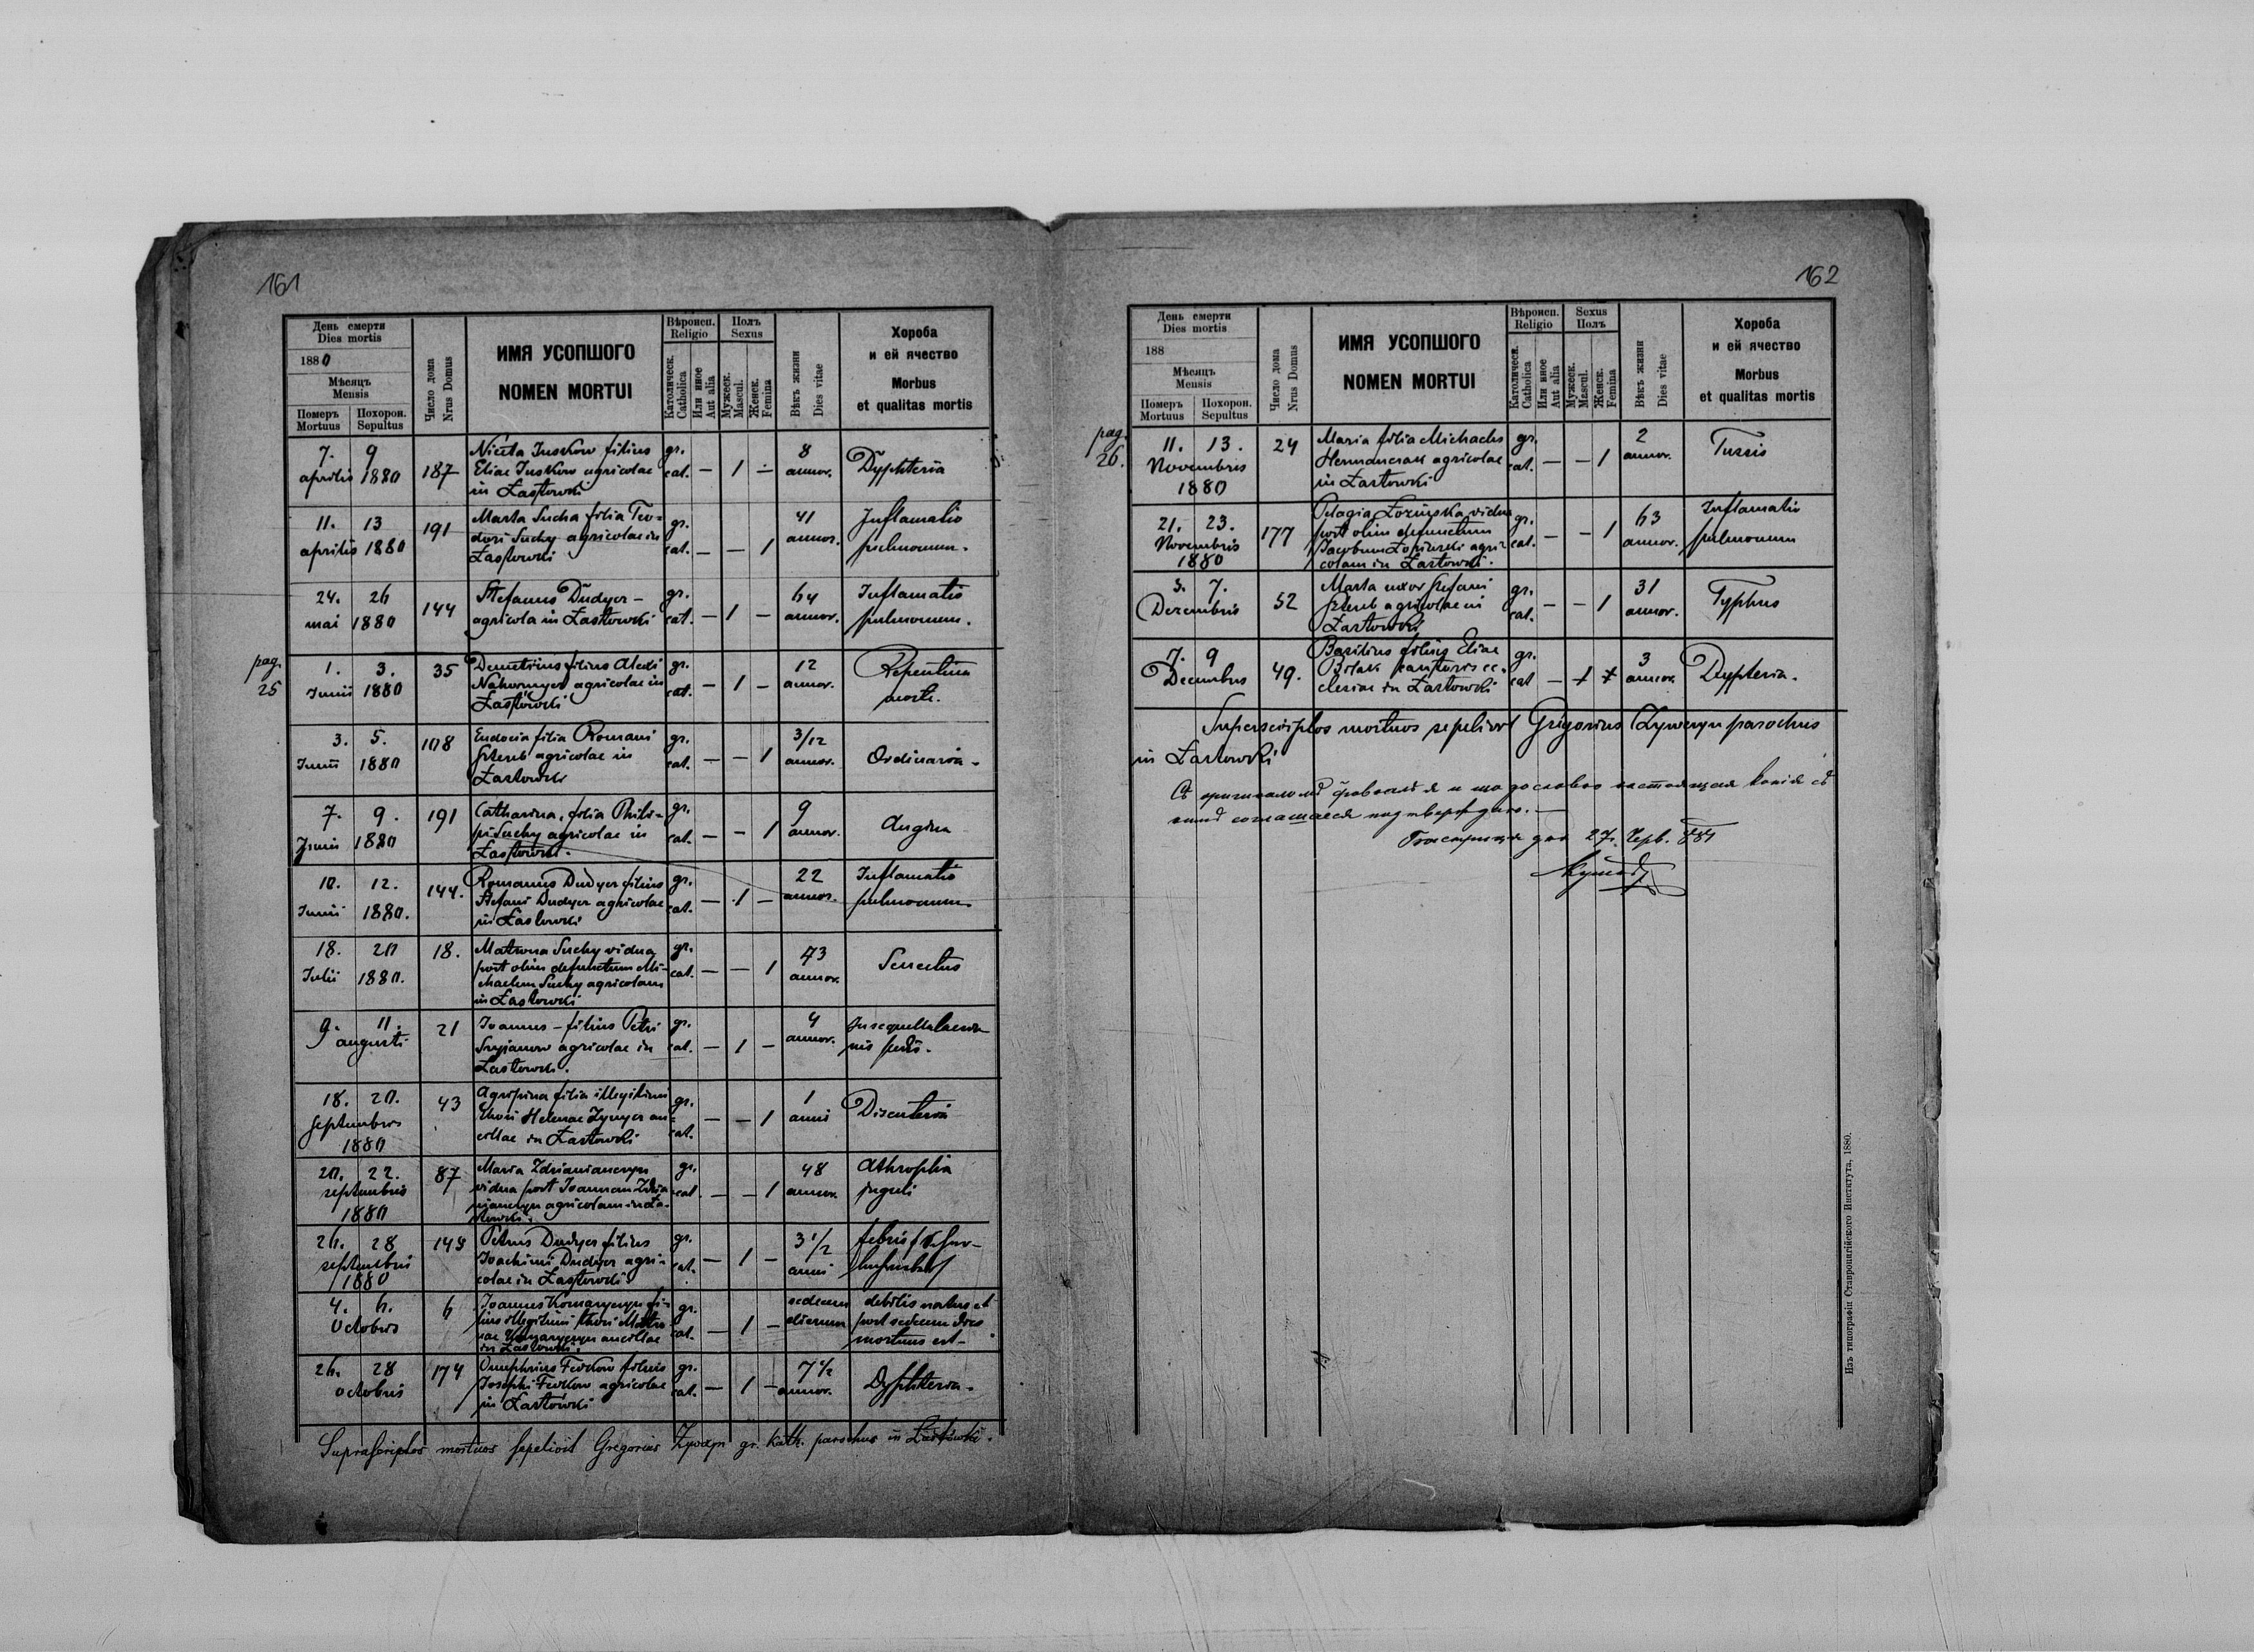 161
День смерти
Dies mortis
1880
Мѣсяцъ
Mensis
Померъ
Mortuus
Похорон.
Sepultus
Число дома
Nrus Domus
ИМЯ УСОПШОГО
NOMEN MORTUI
Вѣроисп.
Religio
Католическ.
Catholica
Или иное
Aut alia
Полъ
Sexus
Мужеск.
Mascul.
Женск.
Femina
Вѣкъ жизни
Dies vitae
Хороба
и ей ячество
Morbus
et qualitas mortis
7. 9
aprilis 1880 187 Nicéta Juskow filius
Eliae Juskow agricolae
in Łastowki
gr.
cat. — 1 — 8
annor. Dyphteria
11. 13
aprilis 1880 191 Marta Sucha filia Teo-
dori Suchy agricolae in
Łastowki
gr.
cat. — — 1 41
annor. Inflamatio
pulmonum.
24. 26
mai 1880 144 Stefanus Dudycz –
agricola in Łastowki
gr.
cat. — 1 — 64
annor. Inflamatio
pulmonum.
pag.
25
1. 3.
Junii 1880 35 Demetrius filius Alexi
agricolae in
Łastówki
gr.
cat. — 1 — 12
annor. Repentina
morte.
3. 5.
Junii 1880 108 Eudocia filia Romani
agricolae in
Łastowki
gr.
cat. — — 1 3/12
annor. Ordinaria.
7. 9.
Junii 1880 191 Catharina, filia Phili-
pi Suchy agricolae in
Łastowki.
gr.
cat. — — 1 9
annor. Angina
10. 12.
Junii 1880. 144. Romanus Dudycz filius
Stefani Dudycz agricolae
in Łastowki
gr.
cat. — 1 — 22
annor. Inflamatio
pulmonum
18. 20
Julii 1880. 18. Matrona Suchy vidua
post olim defunctum Mi-
chaelem Suchy agricolam
in Łastowki
gr.
cat. — — 1 73
annor. Senectus
9. 11.
augusti 21 Joannes – filius Petri
agricolae in
Łastowki.
gr.
cat. — 1 — 4
annor.
18. 20.
Septembris
1880 43 Agripina filia illegitimi
thori Helenae an-
cillae in Łastowki
gr.
cat. — — 1 1
anni Disenteria
20. 22.
septembris
1880 87 Maria
vidua post Joannem
agricolam in Ła-
stowki.
gr.
cat. — — 1 48
annor. Athrophia
26. 28
septembris
1880 Petrus Dudycz filius
Joachimi Dudycz agri-
colae in Łastowki
gr.
cat. — 1 — 3 1/2
anni febris
4. 6.
Octobris 6 Joannes Komarycyn fi-
lius illegitimi thori Matro-
nae Komarycyn ancillae
in Łastowki.
gr.
cat. — 1 — sedecem
dierum debilis natus et
post sedecem dies
mortuus est –
26. 28
octobris 174 Onuphrius Fedkow filius
Josephi Fedkow agricolae
in Łastówki
gr.
cat. — 1 — 7 1/2
annor. Dyphteria.
Suprascriptos mortuos sepelivit Gregorius Zywczyn gr. kath. parochus in Łastówki.
162
День смерти
Dies mortis
188
Мѣсяцъ
Mensis
Померъ
Mortuus
Похорон.
Sepultus
Число дома
Nrus Domus
ИМЯ УСОПШОГО
NOMEN MORTUI
Вѣроисп.
Religio
Католическ.
Catholica
Или иное
Aut alia
Sexus
Полъ
Мужеск.
Mascul.
Женск.
Femina
Вѣкъ жизни
Dies vitae
Хороба
и ей ячество
Morbus
et qualitas mortis
pag.
26.
11. 13.
Novembris
1880 24 Maria filia Michaelis
Hermanczak agricolae
in Łastowki
gr.
cat. — — 1 2
annor. Tussis
21. 23.
Novembris
1880 177 Pelagia Łozińska vidua
post olim defunctum
Jacobum Łoziński agri-
colam in Łastowki.
gr.
cat. — — 1 63
annor. Inflamatio
pulmonum
7.
Decembris 52 Marta uxor Stefani
agricolae in
Łastowki
gr.
cat. — — 1 31
annor. Typhus
7. 9
Decembris 49. Basilius filius Eliae
Bilak cantoris ec-
clesiae in Łastowki
gr.
cat — 1 3
annor. Dypteria.
Superscriptos mortuos sepelivit Grigorius Zywczyn parochus
in Łastowki
27. Черв. 884
Изъ типографіи Ставропигійского Института, 1880.